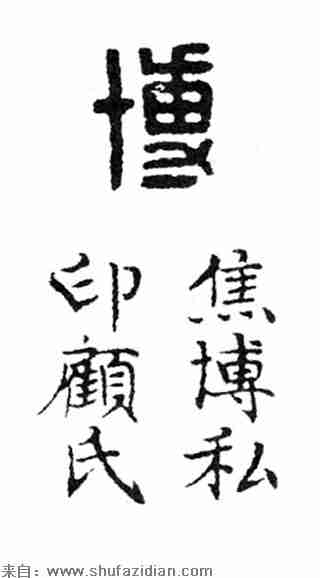 博
焦博私
印顧氏
来自：www.shufazidian.com